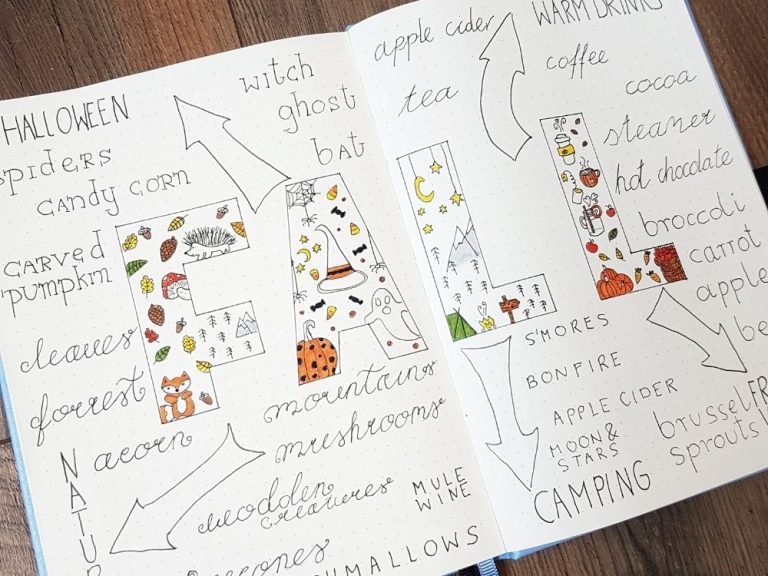 HALLOWEEN
witch
ghost
bat
spiders
candy corn
carved
pumpkin
leaves
forrest
acorn
NATUR
FALL
mountains
mushrooms
wooden
creatures
MULE
WINE
apple cider
WARM DRINKS
coffee
tea
cocoa
steamer
hot chocolate
broccoli
carrot
apple
be
S'MORES
BONFIRE
APPLE CIDER
MOON &
STARS
CAMPING
FR
brussel
sprouts